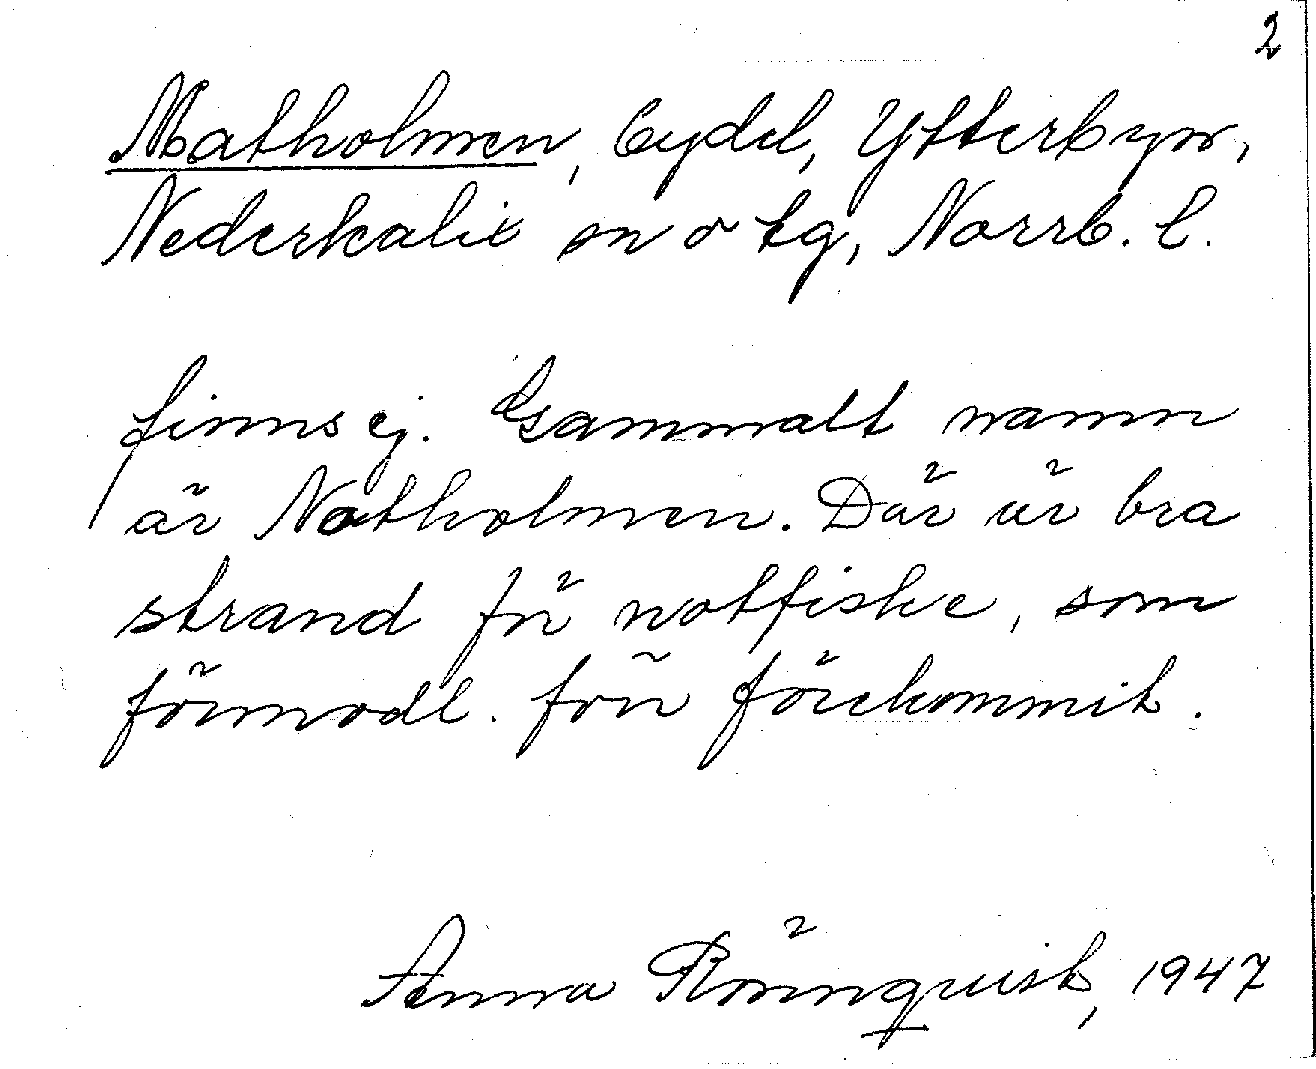 2
Matholmen, bydel, Ytterbyn,
Nederkalix sn o tg, Norrb. l.
finns ej. Gammalt namn
är Notholmen. Där är bra
strand för notfiske, som
förmodl. förr förekommit.
Anna Rönnquist, 1947